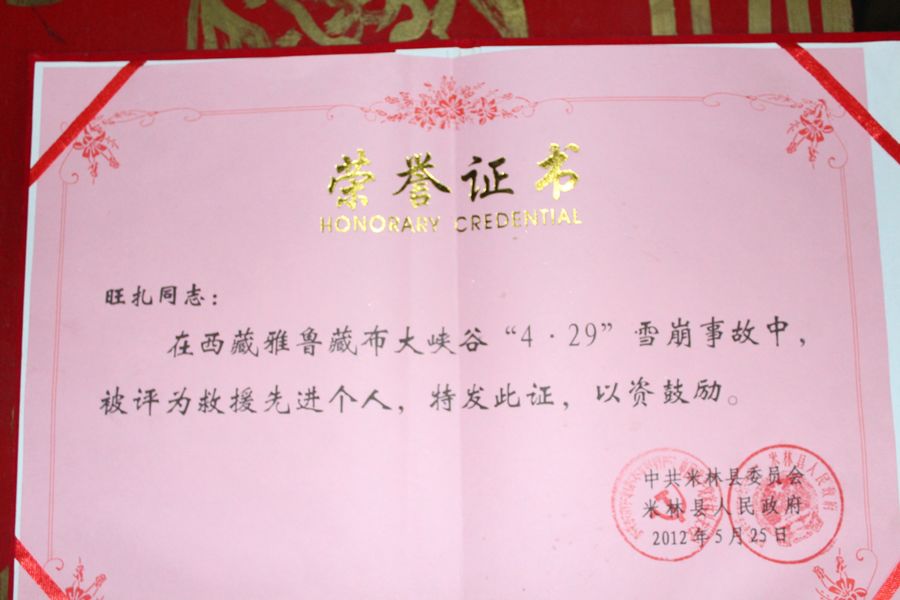 荣誉证书
HONORARY CREDENTIAL
旺扎同志：
在西藏雅鲁藏布大峡谷“4·29”雪崩事故中，
被评为救援先进个人，特发此证，以资鼓励。
中共米林县委员会
米林县人民政府
2012年5月25日
米林县人民政府